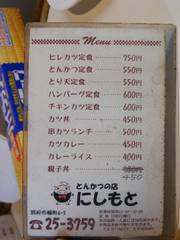 Menu
ヒレカツ定食 750円
とんかつ定食 550円
とり天定食 550円
ハンバーグ定食 600円
チキンカツ定食 600円
カツ丼 450円
串カツランチ 500円
カツカレー 550円
カレーライス 400円
親子丼
450
とんかつの店
にしもと
☎25-3759